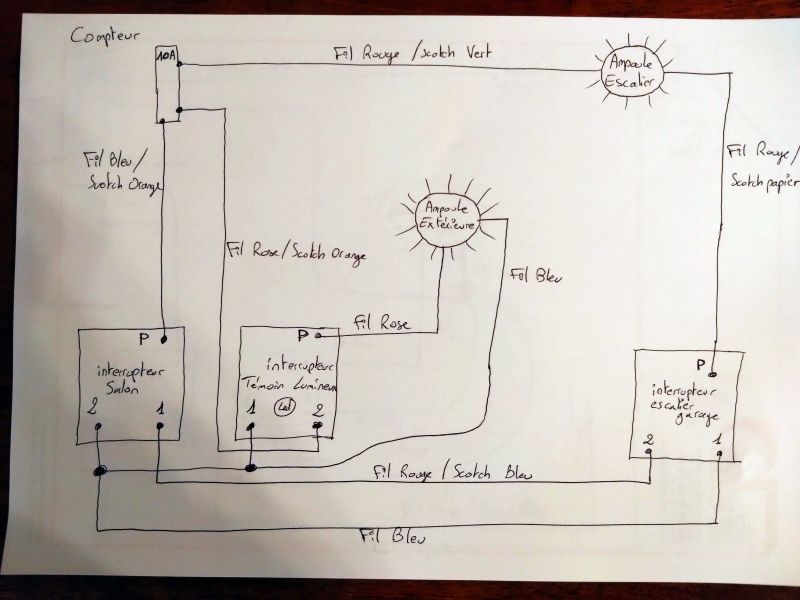 Compteur
10A
Fil Rouge / Scotch Vert
Ampoule
Escalier
Fil Bleu /
Scotch Orange
Fil Rouge /
Scotch papier
Ampoule
Extérieure
Fil Rose / Scotch Orange
Fil Bleu
Fil Rose
P
interrupteur
Salon
2 1
P
interrupteur
Témoin Lumineux
1 Led 2
P
interrupteur
escalier
garage
2 1
Fil Rouge / Scotch Bleu
Fil Bleu